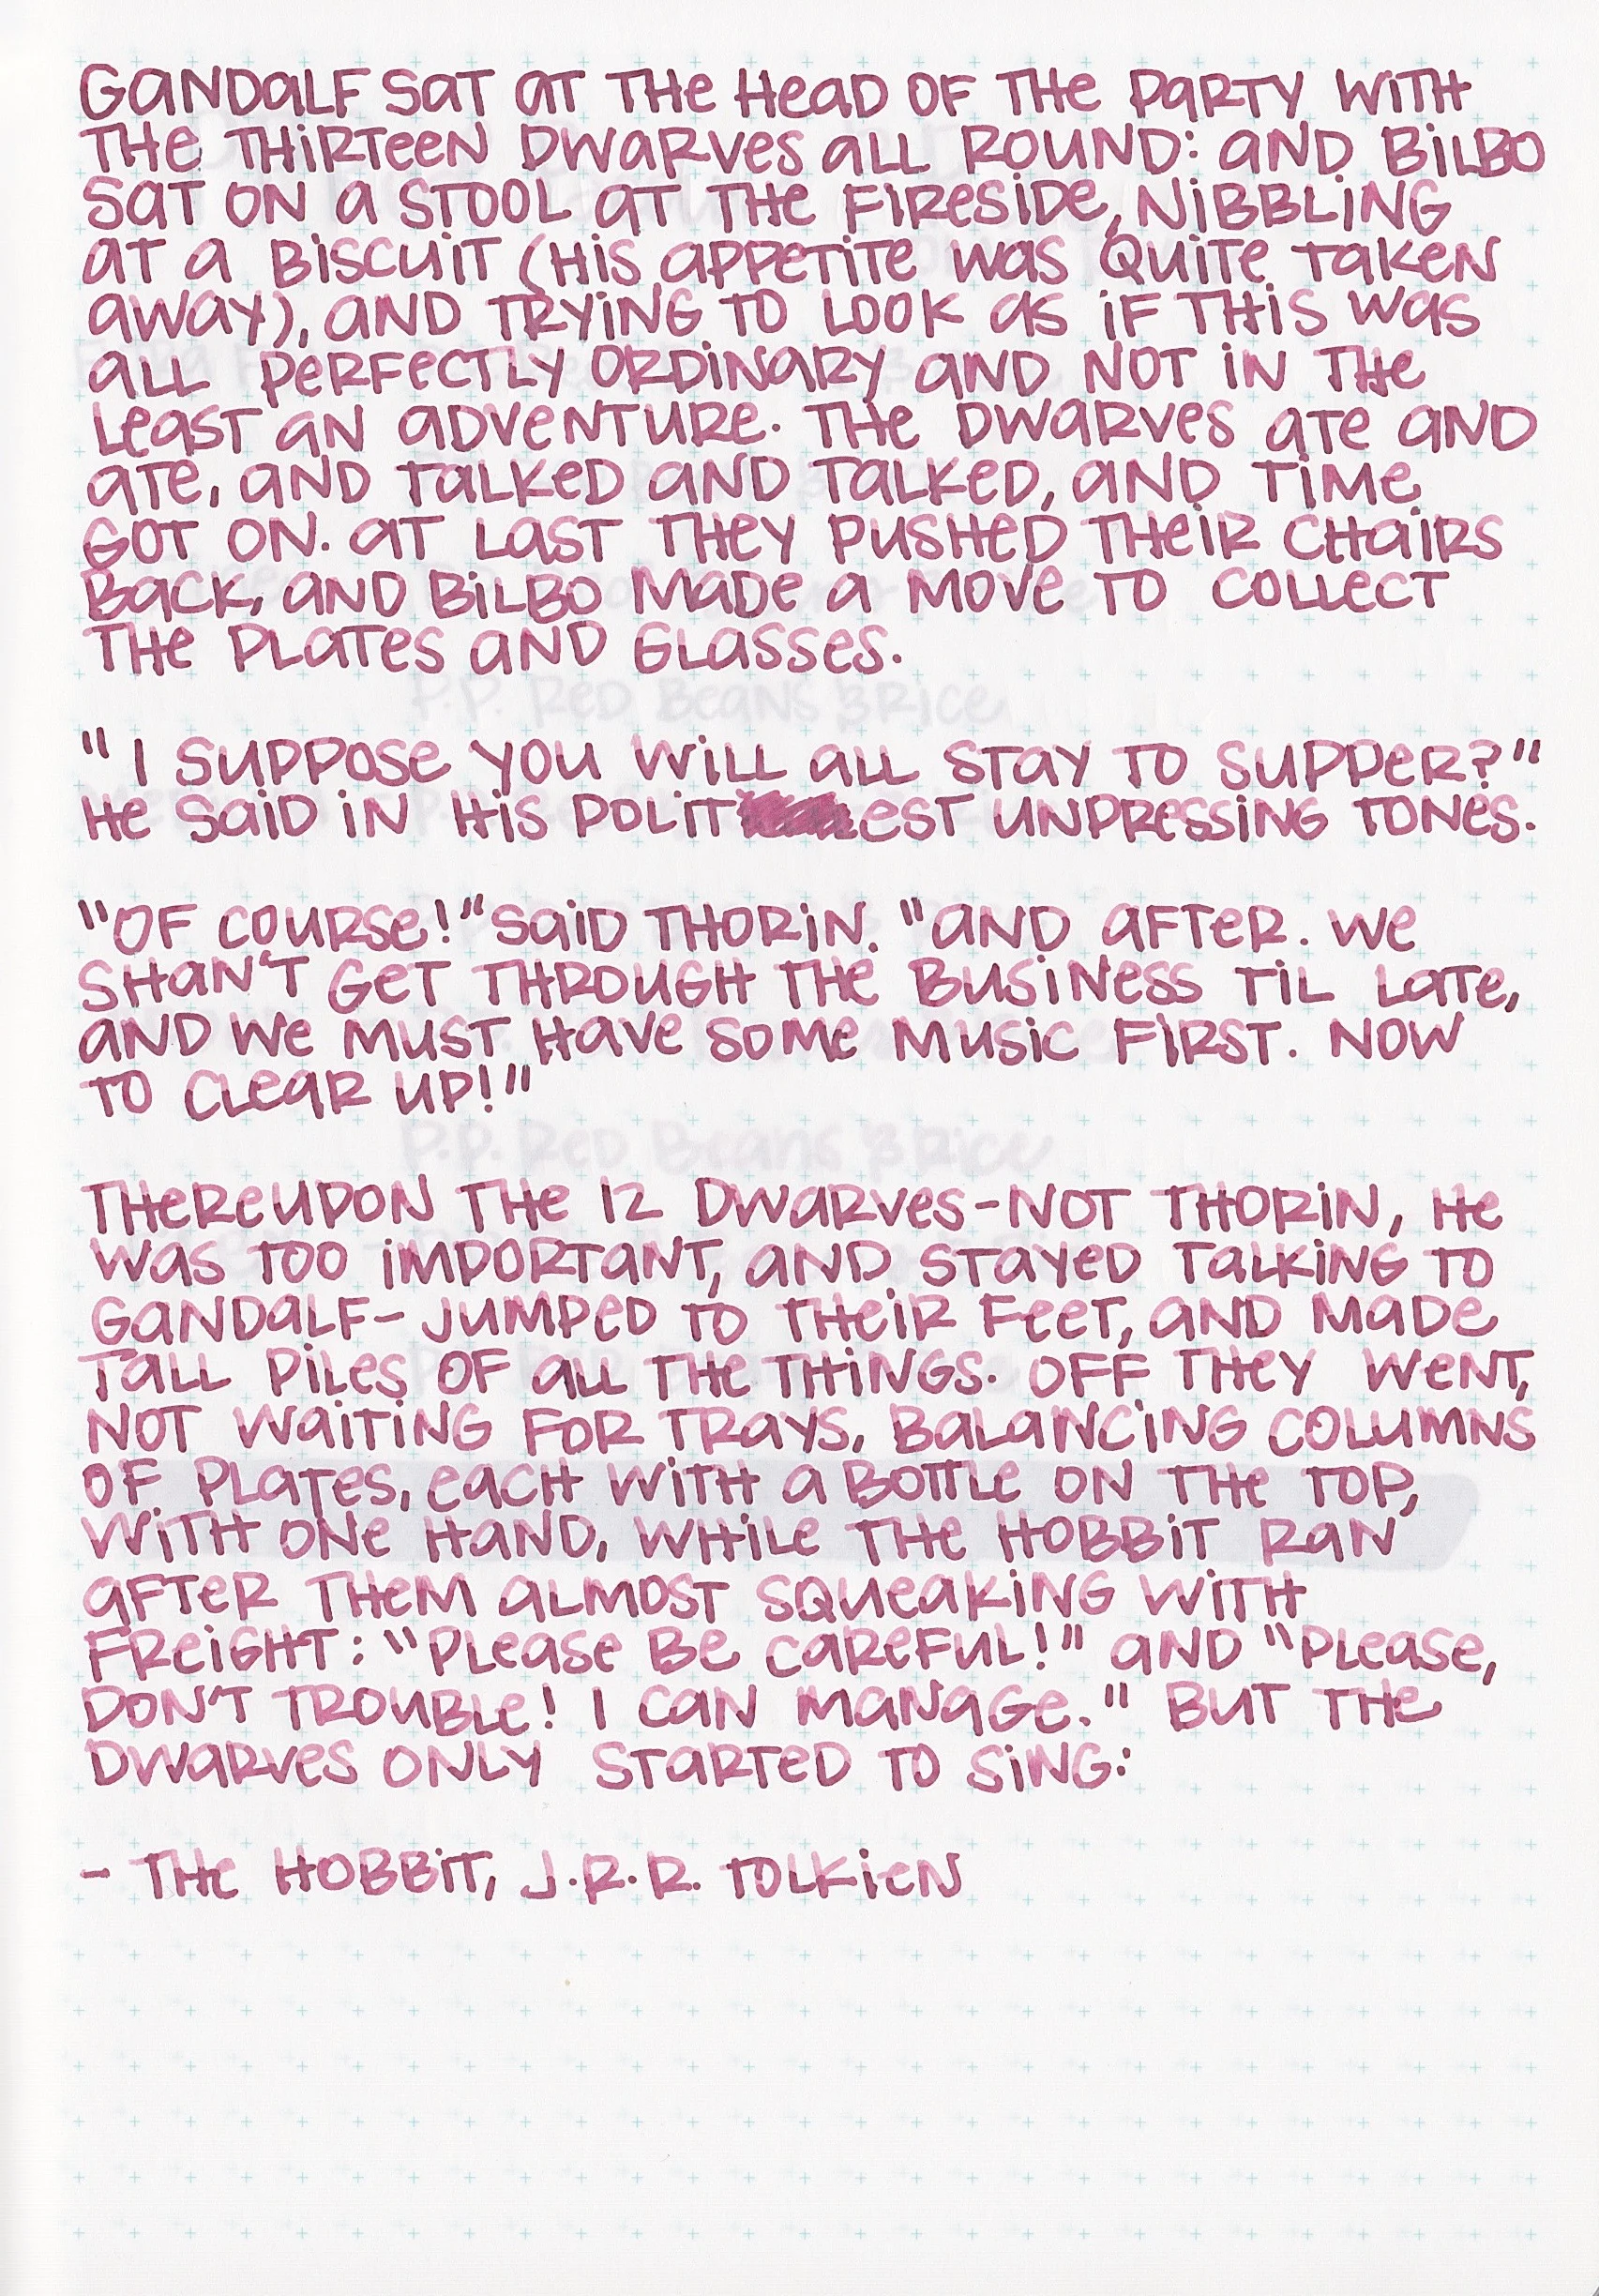 GANDALF SAT AT THE HEAD OF THE PARTY WITH
THE THIRTEEN DWARVES ALL ROUND: AND BILBO
SAT ON A STOOL AT THE FIRESIDE, NIBBLING
AT A BISCUIT (HIS APPETITE WAS QUITE TAKEN
AWAY), AND TRYING TO LOOK AS IF THIS WAS
ALL PERFECTLY ORDINARY AND NOT IN THE
LEAST AN ADVENTURE. THE DWARVES ATE AND
ATE, AND TALKED AND TALKED, AND TIME
GOT ON. AT LAST THEY PUSHED THEIR CHAIRS
BACK, AND BILBO MADE A MOVE TO COLLECT
THE PLATES AND GLASSES.
P.P. RED BEANS & RICE
"I SUPPOSE YOU WILL ALL STAY TO SUPPER?"
HE SAID IN HIS POLITEST UNPRESSING TONES.
"OF COURSE!" SAID THORIN. "AND AFTER. WE
SHAN'T GET THROUGH THE BUSINESS TIL LATE,
AND WE MUST HAVE SOME MUSIC FIRST. NOW
TO CLEAR UP!"
P.P. RED BEANS & RICE
THEREUPON THE 12 DWARVES-NOT THORIN, HE
WAS TOO IMPORTANT, AND STAYED TALKING TO
GANDALF- JUMPED TO THEIR FEET, AND MADE
TALL PILES OF ALL THE THINGS. OFF THEY WENT,
NOT WAITING FOR TRAYS, BALANCING COLUMNS
OF PLATES, EACH WITH A BOTTLE ON THE TOP,
WITH ONE HAND, WHILE THE HOBBIT RAN
AFTER THEM ALMOST SQUEAKING WITH
FREIGHT: "PLEASE BE CAREFUL!" AND "PLEASE,
DON'T TROUBLE! I CAN MANAGE." BUT THE
DWARVES ONLY STARTED TO SING:
- THE HOBBIT, J.R.R. TOLKIEN